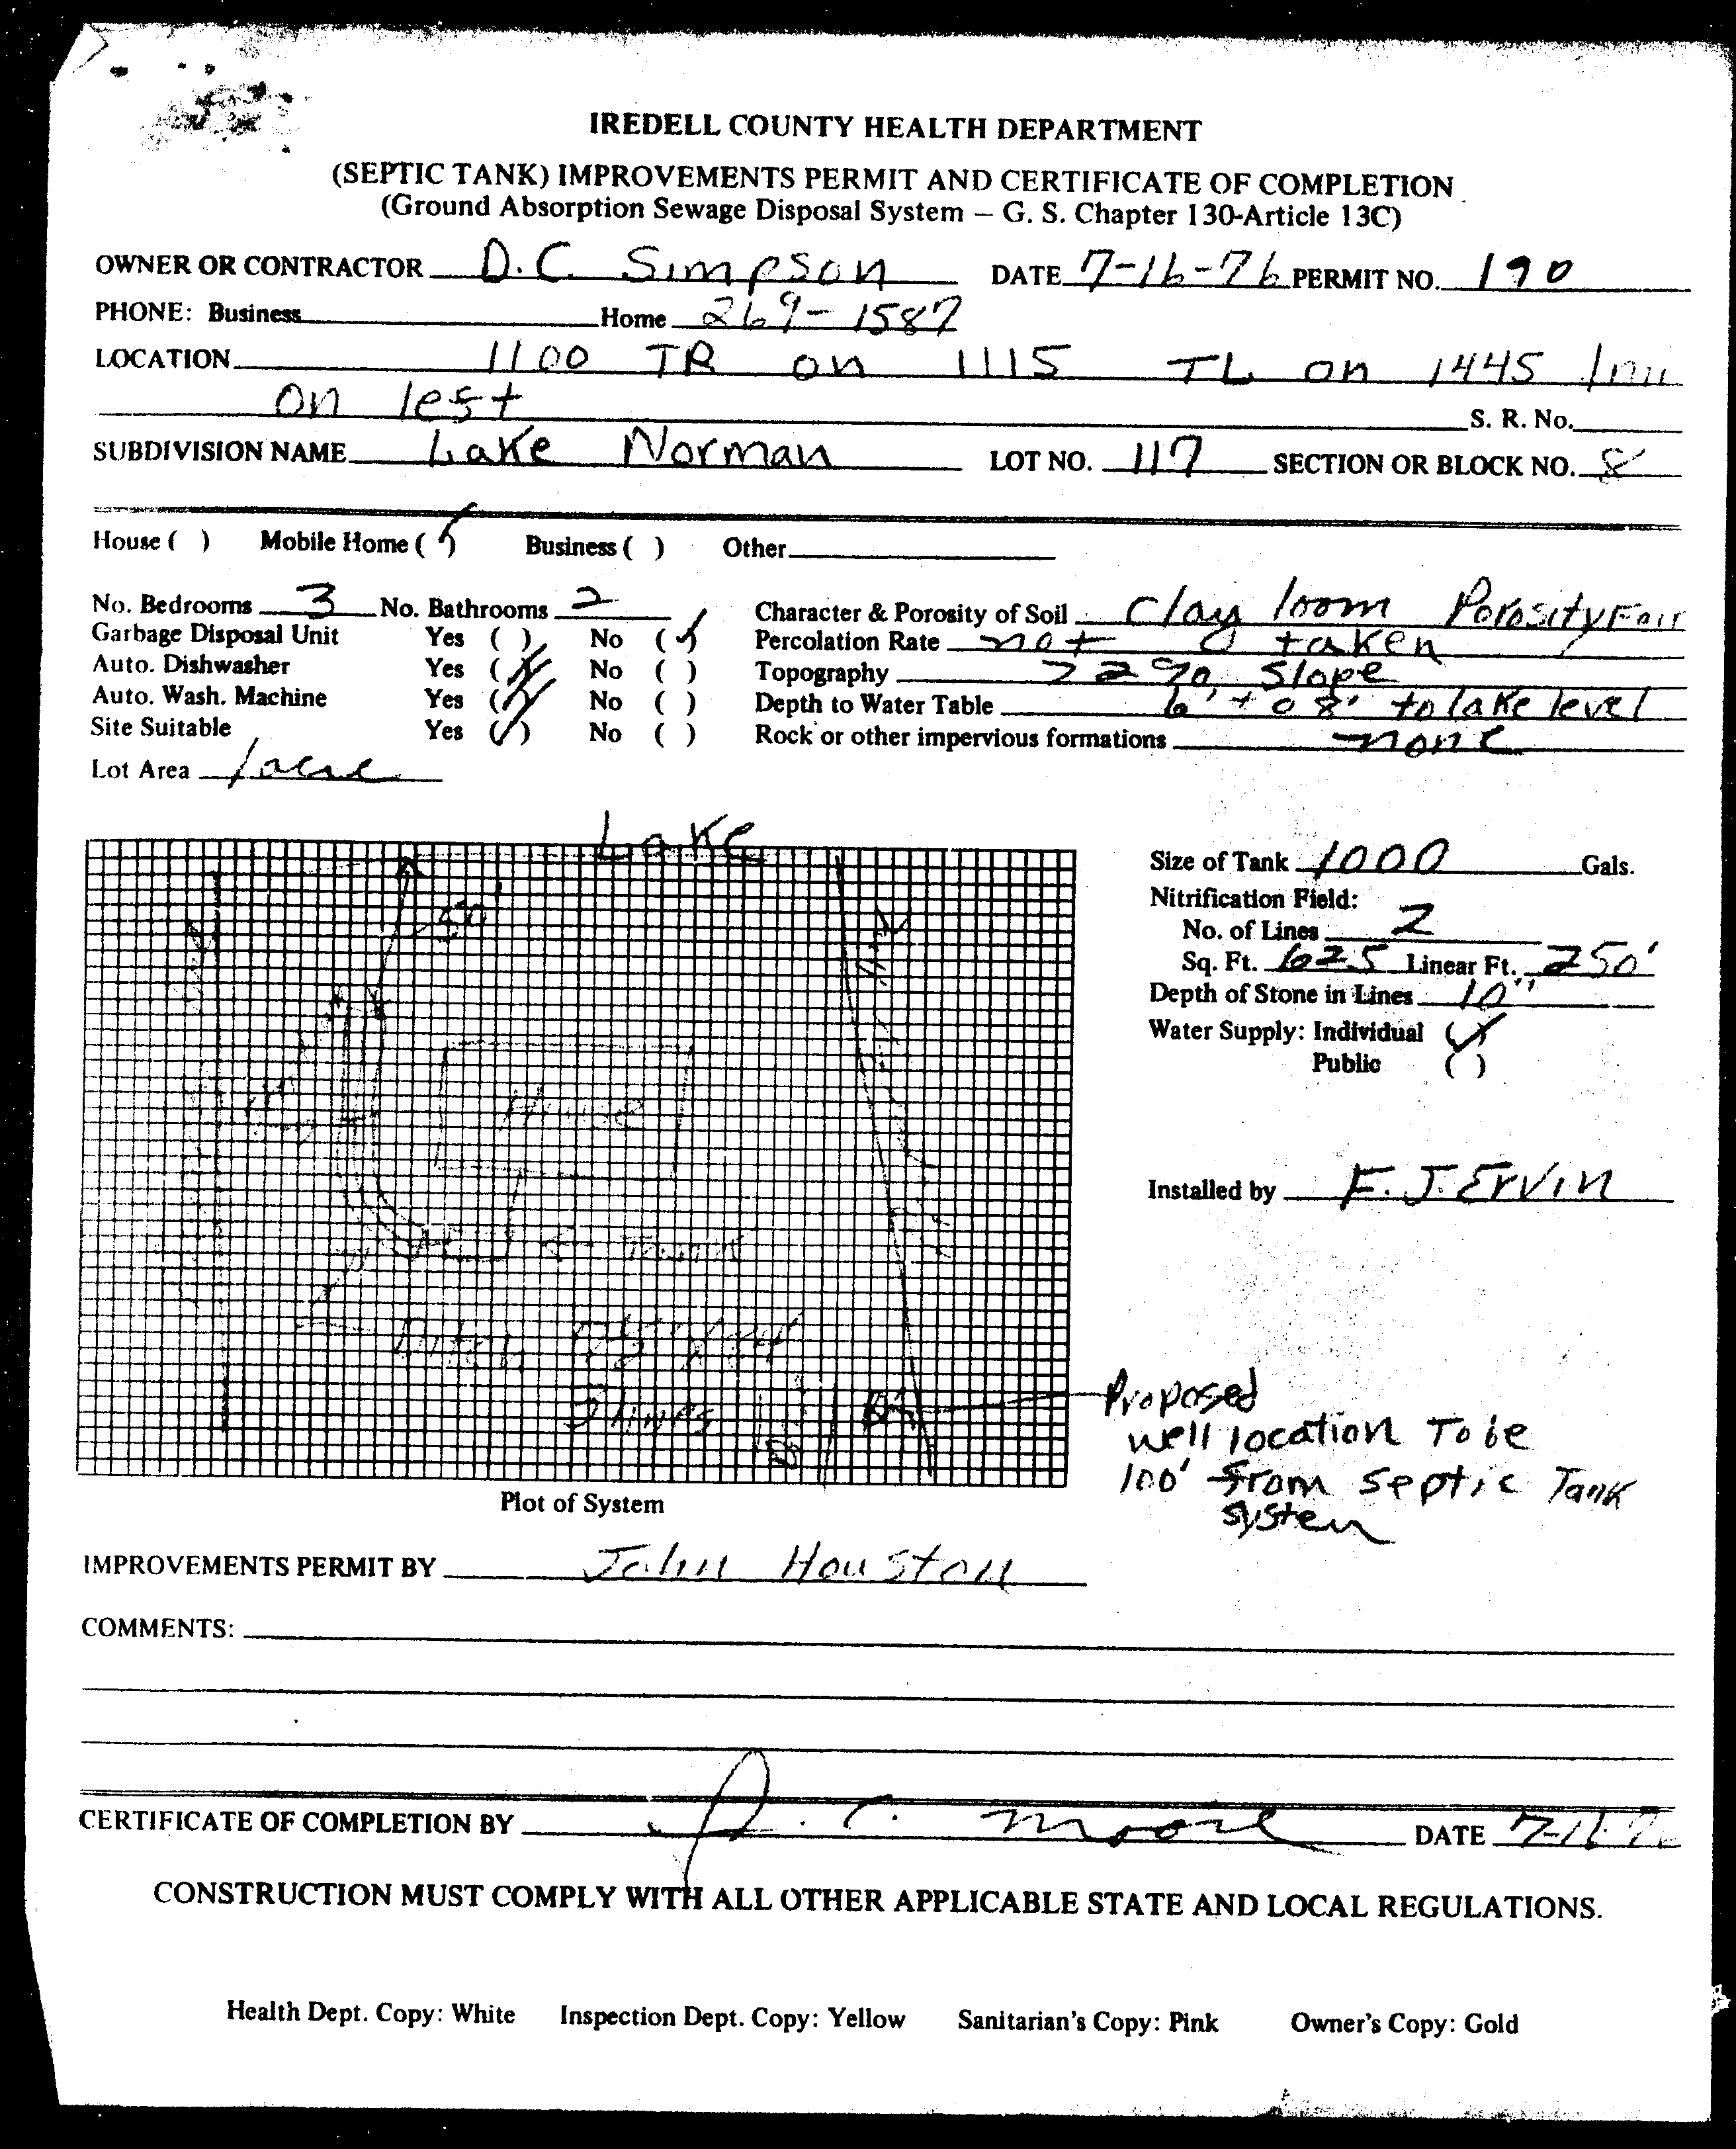 IREDELL COUNTY HEALTH DEPARTMENT
(SEPTIC TANK) IMPROVEMENTS PERMIT AND CERTIFICATE OF COMPLETION
(Ground Absorption Sewage Disposal System – G. S. Chapter 130-Article 13C)
OWNER OR CONTRACTOR D.C. Simpson DATE 7-16-76 PERMIT NO. 190
PHONE: Business Home 269-1587
LOCATION 1100 TR on 1115 TL on 1445 1 mi
on left S. R. No.
SUBDIVISION NAME Lake Norman LOT NO. 117 SECTION OR BLOCK NO. 8
House ( ) Mobile Home (✓) Business ( ) Other
No. Bedrooms 3 No. Bathrooms 2 Character & Porosity of Soil Clay loom Porosity Fair
Garbage Disposal Unit Yes ( ) No (✓) Percolation Rate not taken
Auto. Dishwasher Yes (✓) No ( ) Topography 22% Slope
Auto. Wash. Machine Yes (✓) No ( ) Depth to Water Table 6' to 8' to lake level
Site Suitable Yes (✓) No ( ) Rock or other impervious formations none
Lot Area 1 acre
Lake
Size of Tank 1000 Gals.
Nitrification Field:
50'
No. of Lines 2
Sq. Ft. 625 Linear Ft. 250'
Depth of Stone in Lines 10''
Water Supply: Individual (✓)
Public ( )
House
Installed by F. J. Ervin
Tank
Lines
Proposed
well location To be
100' from septic Tank
system
Plot of System
IMPROVEMENTS PERMIT BY John Houston
COMMENTS:
CERTIFICATE OF COMPLETION BY J. C. Moore DATE 7-16-76
CONSTRUCTION MUST COMPLY WITH ALL OTHER APPLICABLE STATE AND LOCAL REGULATIONS.
Health Dept. Copy: White Inspection Dept. Copy: Yellow Sanitarian's Copy: Pink Owner's Copy: Gold